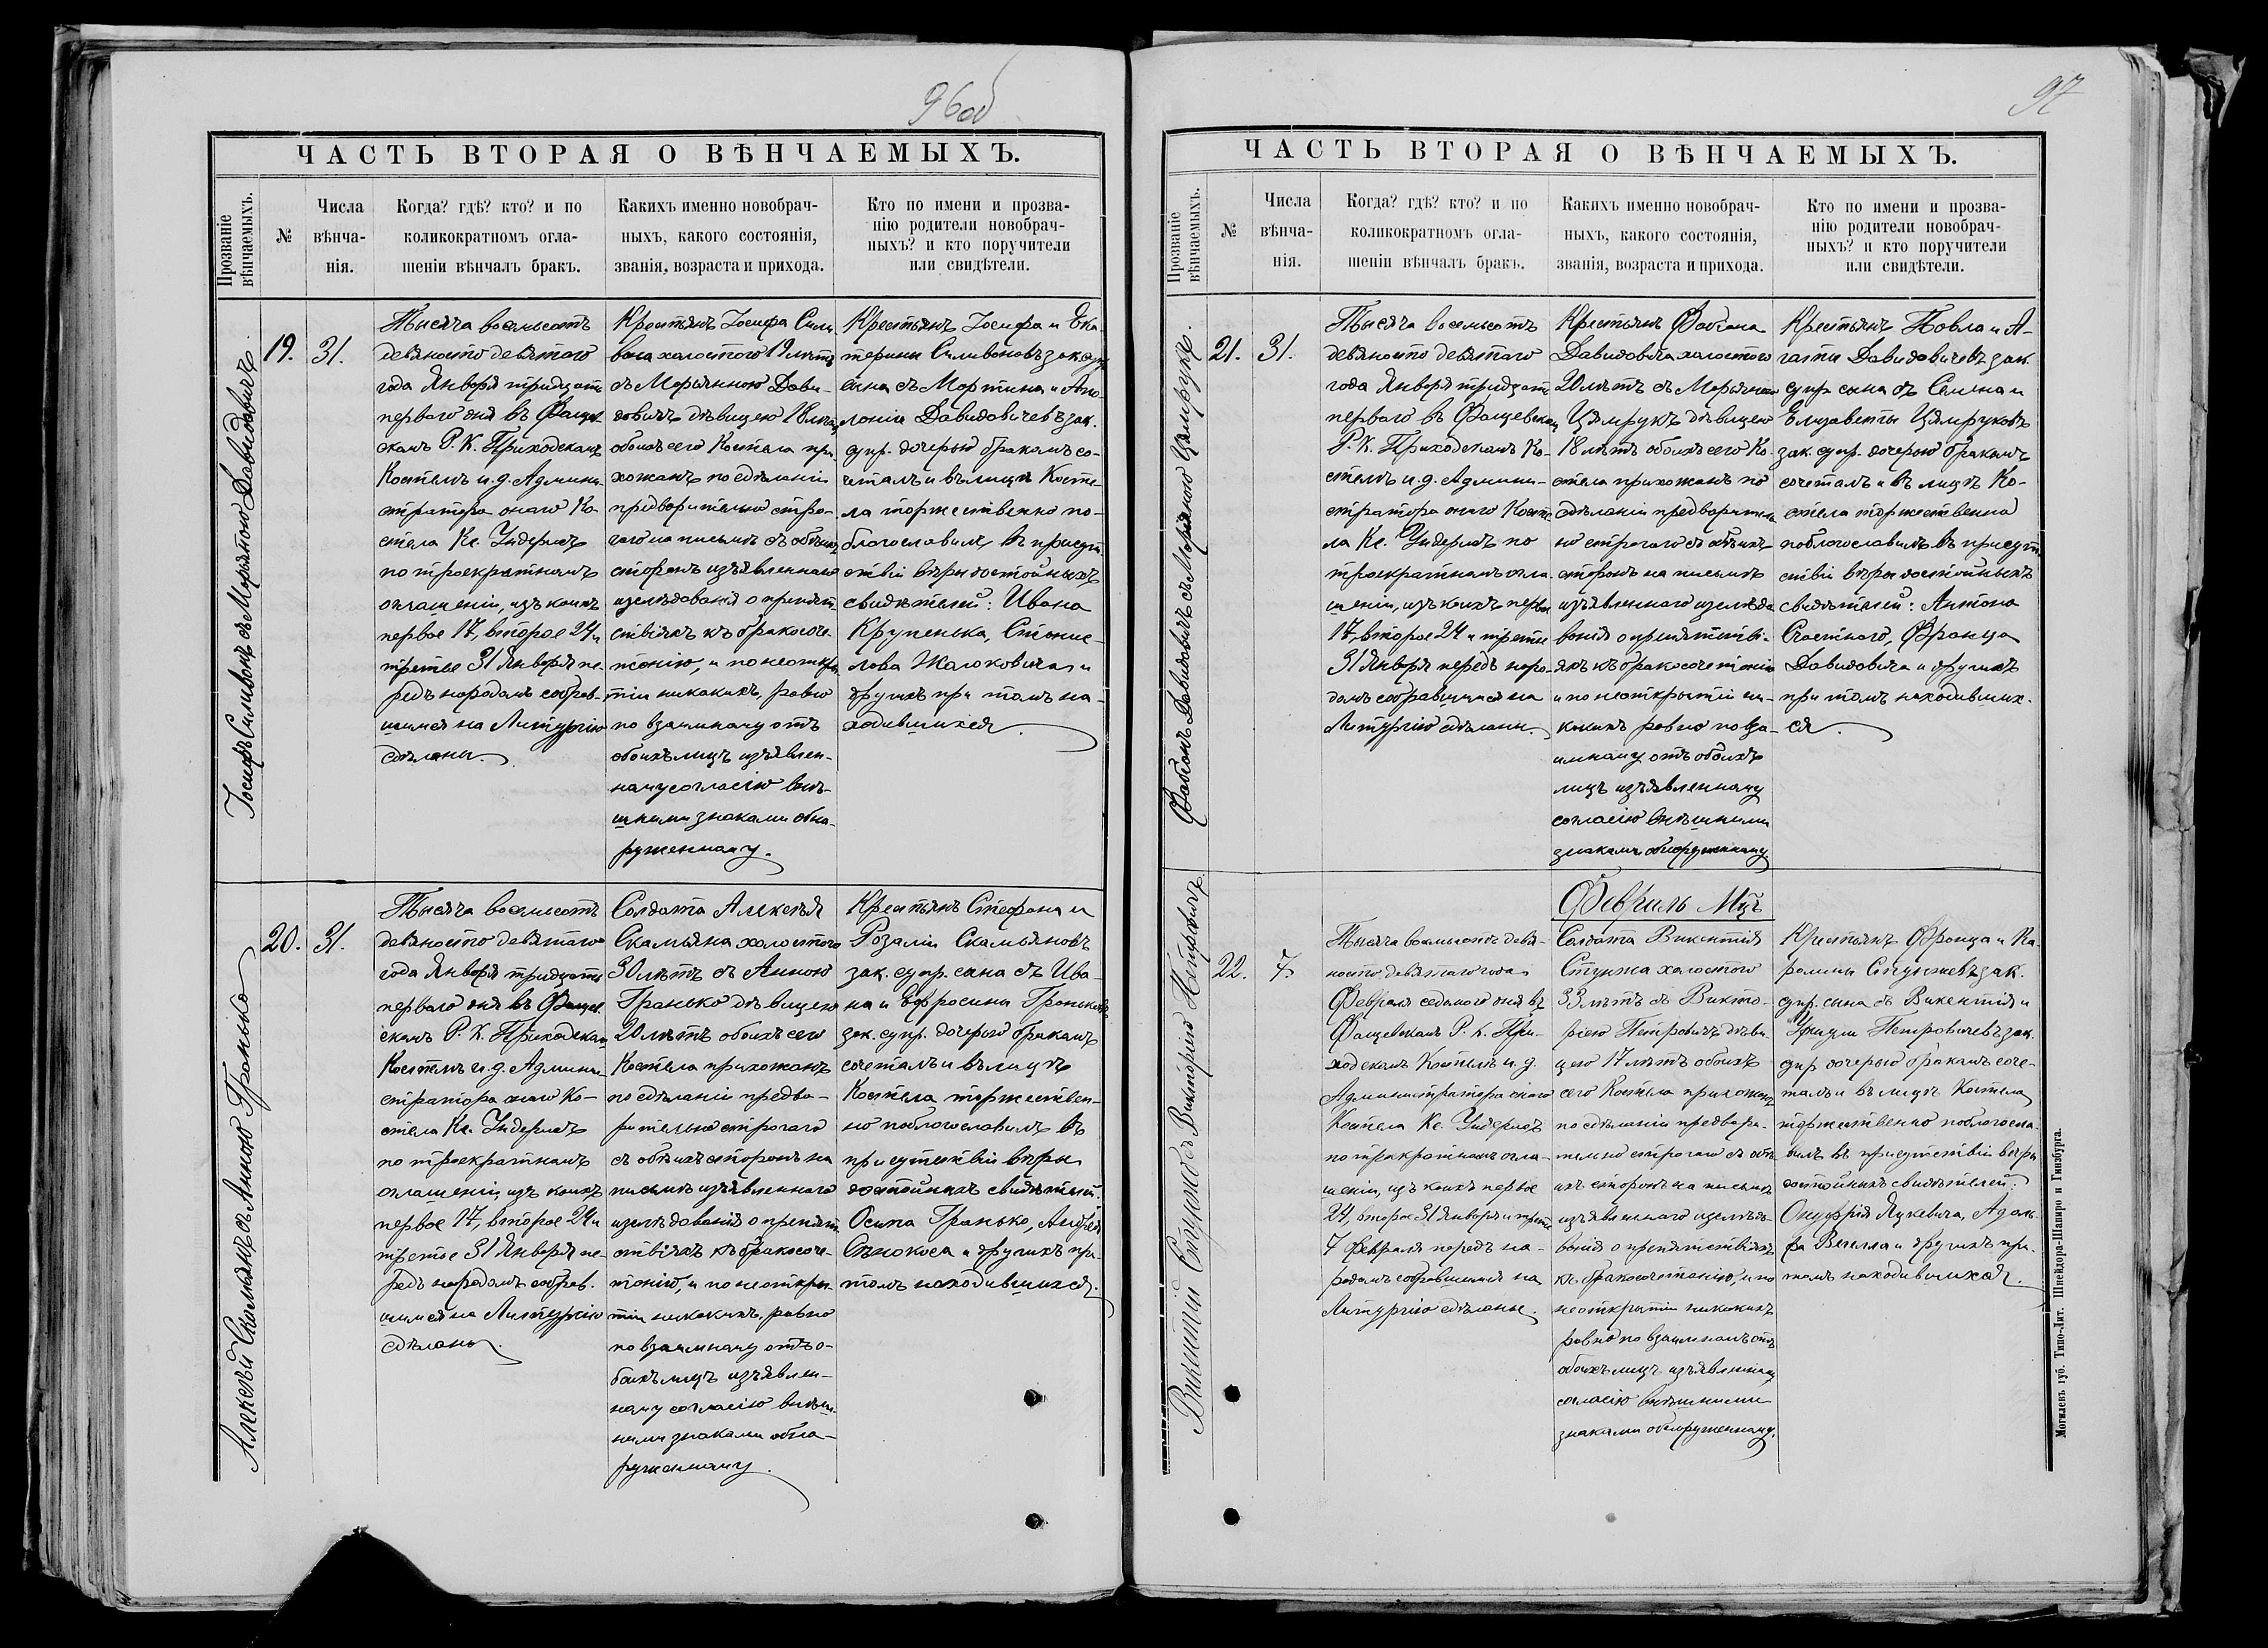 96об
ЧАСТЬ ВТОРАЯ О ВѢНЧАЕМЫХЪ.
Прозваніе
вѣнчаемыхъ.
№
Числа
вѣнча-
нія.
Когда? гдѣ? кто? и по
коликократномъ огла-
шеніи вѣнчалъ бракъ.
Какихъ именно новобрач-
ныхъ, какого состоянія,
званія, возраста и прихода.
Кто по имени и прозва-
нію родители новобрач-
ныхъ? и кто поручители
или свидѣтели.
Іосифъ Силивонъ съ Марьяною Давидовичъ.
19.
31.
Тысяча восемьсотъ
девяносто девятаго
года Января тридцать
перваго дня въ Фащев-
скомъ Р. К. Приходскомъ
Костелѣ и. д. Админи-
стратора онаго Ко-
стела Кс. Ундерисъ
по троекратномъ
оглашеніи, изъ коихъ
первое 17, второе 24 и
третье 31 Января пе-
редъ народомъ собрав-
шимся на Литургію
сдѣланы.
Крестьянъ Іосифа Сили-
вона холостого 19 лѣтъ
съ Марьянною Дави-
довичъ дѣвицею 18 лѣтъ
обоихъ сего Костела при-
хожанъ по сдѣланіи
предварительно стро-
гаго на письмѣ съ обѣихъ
сторонъ изъявленнаго
изслѣдованія о препят-
ствіяхъ къ бракосоче-
танію, и по неоткры-
тіи никакихъ, равно
по взаимному отъ
обоихъ лицъ изъявлен-
ному согласію внѣ-
шними знаками обна-
руженному.
Крестьянъ Іосифа и Ека-
терины Силивоновъ зак. супр.
сына съ Мартина и Апо-
лоніи Давидовичевъ зак.
супр. дочерью бракомъ со-
четалъ и въ лицѣ Косте-
ла торжественно по-
благословилъ въ присут-
ствіи вѣры достойныхъ
свидѣтелей: Ивана
Крупенька, Станис-
лава Жолоковича и
другихъ при томъ на-
ходившихся.
Алексѣй Скамьянъ съ Анною Гранько
20.
31.
Тысяча восемьсотъ
девяносто девятаго
года Января тридцать
перваго дня въ Фащев-
скомъ Р. К. Приходскомъ
Костелѣ и. д. Админи-
стратора онаго Ко-
стела Кс. Ундерисъ
по троекратномъ
оглашеніи, изъ коихъ
первое 17, второе 24 и
третье 31 Января пе-
редъ народомъ собрав-
шимся на Литургію
сдѣланы.
Солдата Алексѣя
Скамьяна холостого
30 лѣтъ съ Анною
Гранько дѣвицею
20 лѣтъ обоихъ сего
Костела прихожанъ
по сдѣланіи предва-
рительно строгаго
съ обѣихъ сторонъ на
письмѣ изъявленнаго
изслѣдованія о препят-
ствіяхъ къ бракосоче-
танію, и по неоткры-
тіи никакихъ, равно
по взаимному отъ о-
боихъ лицъ изъявлен-
ному согласію внѣш-
ними знаками обна-
руженному.
Крестьянъ Стефана и
Розаліи Скамьяновъ
зак. супр. сына съ Ива-
на и Ефросини Граньковъ
зак. супр. дочерью бракомъ
сочеталъ и въ лицѣ
Костела торжествен-
но поблагословилъ въ
присутствіи вѣры
достойныхъ свидѣтелей:
Осипа Гранько, Андрея
Сѣнокоса и другихъ при
томъ находившихся.
97
ЧАСТЬ ВТОРАЯ О ВѢНЧАЕМЫХЪ.
Прозваніе
вѣнчаемыхъ.
№
Числа
вѣнча-
нія.
Когда? гдѣ? кто? и по
коликократномъ огла-
шеніи вѣнчалъ бракъ.
Какихъ именно новобрач-
ныхъ, какого состоянія,
званія, возраста и прихода.
Кто по имени и прозва-
нію родители новобрач-
ныхъ? и кто поручители
или свидѣтели.
Фабіанъ Давидовичъ съ Марьяною Цямрукъ.
21.
31.
Тысяча восемьсотъ
девяносто девятаго
года Января тридцать
перваго въ Фащевскомъ
Р. К. Приходскомъ Ко-
стелѣ и. д. Админи-
стратора онаго Косте-
ла Кс. Ундерисъ по
троекратномъ огла-
шеніи, изъ коихъ первое
17, второе 24 и третье
31 Января передъ наро-
домъ собравшимся на
Литургію сдѣланы.
Крестьянъ Фабіана
Давидовича холостого
20 лѣтъ съ Марьяною
Цямрукъ дѣвицею
18 лѣтъ обоихъ сего Ко-
стела прихожанъ по
сдѣланіи предваритель-
но строгаго съ обѣихъ
сторонъ на письмѣ
изъявленнаго изслѣдо-
ванія о препятстві-
яхъ къ бракосочетанію
и по неоткрытіи ни-
какихъ равно по вза-
имному отъ обоихъ
лицъ изъявленному
согласію внѣшними
знаками обнаруженному.
Крестьянъ Павла и А-
гаты Давидовичевъ зак.
супр. сына съ Семена и
Елизаветы Цямруковъ
зак. супр. дочерью бракомъ
сочеталъ и въ лицѣ Ко-
стела торжественно
поблагословилъ въ присут-
ствіи вѣры достойныхъ
свидѣтелей: Антона
Счастного, Франца
Давидовича и другихъ
при томъ находивших-
ся.
Февраль Мцъ
Викентій Стунжъ съ Викторіею Петровичъ.
22.
7.
Тысяча восемьсотъ девя-
носто девятаго года
Февраля седьмого дня въ
Фащевскомъ Р. К. При-
ходскомъ Костелѣ и. д.
Администратора онаго
Костела Кс. Ундерисъ
по троекратномъ огла-
шеніи, изъ коихъ первое
24, второе 31 Января и третье
7 Февраля передъ на-
родомъ собравшимся на
Литургію сдѣланы.
Солдата Викентія
Стунжа холостого
33 лѣтъ съ Викто-
ріею Петровичъ дѣви-
цею 17 лѣтъ обоихъ
сего Костела прихожанъ
по сдѣланіи предвари-
тельно строгаго съ обѣ-
ихъ сторонъ на письмѣ
изъявленнаго изслѣдо-
ванія о препятствіяхъ
къ бракосочетанію, и по
неоткрытіи никакихъ
равно по взаимномъ отъ
обоихъ лицъ изъявленному
согласію внѣшними
знаками обнаруженному.
Крестьянъ Франца и Ка-
ролины Стунжевъ зак.
супр. сына съ Викентія и
Уршули Петровичевъ зак.
супр. дочерью бракомъ соче-
талъ и въ лицѣ Костела
торжественно поблагосла-
вилъ въ присутствіи вѣры
достойныхъ свидѣтелей:
Онуфрія Яцкевича, Адоль-
фа Вегелла и другихъ при
томъ находившихся.
Могилевъ губ. Типо-Лит. Шнейдора-Шапиро и Гинзбурга.